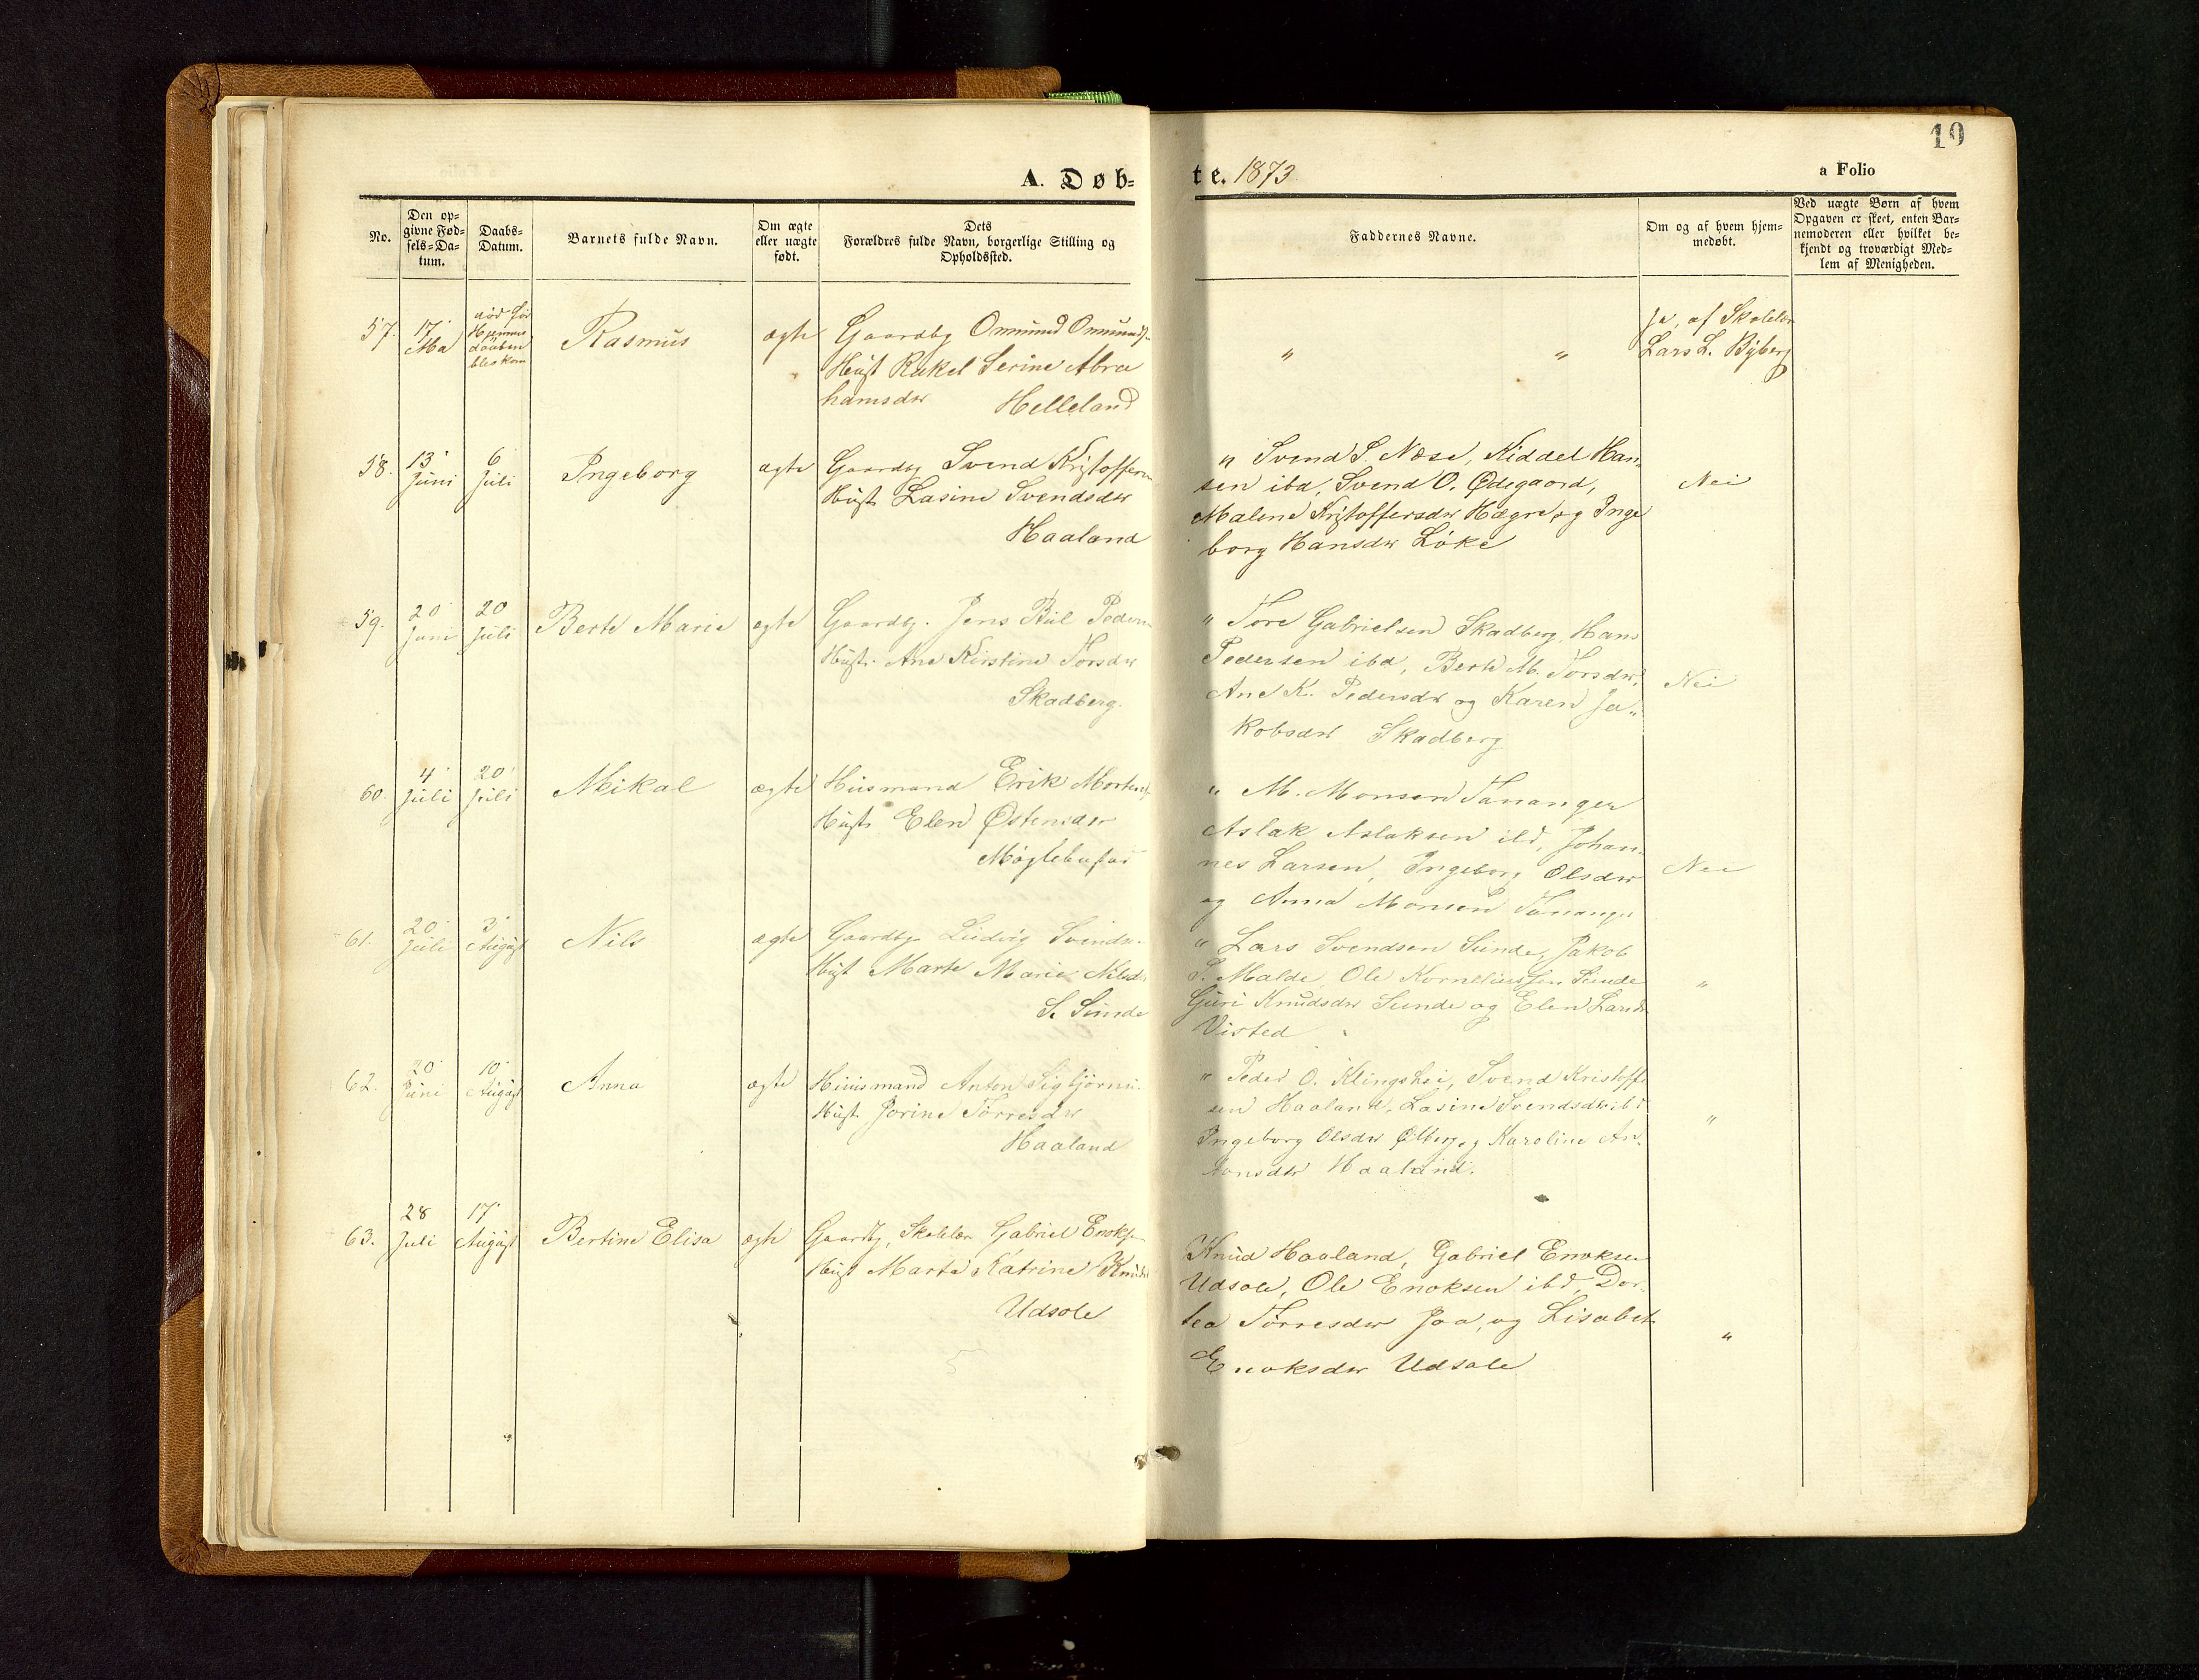 10
A. Døb-
te. 1873
a Folio
No.
Den op-
givne Fød-
sels-Da-
tum.
Daabs-
Datum.
Barnets fulde Navn.
Om ægte
eller uægte
født.
Dets
Forældres fulde Navn, borgerlige Stilling og
Opholdssted.
Faddernes Navne.
Om og af hvem hjem-
medøbt.
Ved uægte Børn af hvem
Opgaven er skeet, enten Bar-
nemoderen eller hvilket be-
kjendt og troværdigt Med-
lem af Menigheden.
57.
17
Mai
død før
Hjemme
daaben
Rasmus
ægte
Gaardbg Omund Omunds.
Hust Rakel Serine Abra
hamsdtr Helleland
" "
Ja, af Skolelær
Lars L. Byberg
58.
13
Juni
6
Juli
Ingeborg
ægte
Gaardbg Svend Kristoffersen
Hust Lasine Svendsdtr
Haaland
" Svend S. Næse, Kiddel Han-
sen ibd, Svend O. Ødegaard,
Malene Kristoffersdtr Hægre, og Inge
borg Hansdtr Løke
Nei
59.
20
Juni
20
Juli
Berte Marie
ægte
Gaardbg. Jens Pedersen
Hust. Ane Kirstine Torsdtr
Skadberg.
" Tore Gabrielsen Skadberg, Hans
Pedersen ibd, Berte M. Torsdtr,
Ane K. Pedersdtr og Karen Ja-
kobsdtr Skadberg
Nei
60.
4
Juli
20
Juli
Mikal
ægte
Husmand Erik Mortens
Hust Elen Østensdtr
" M. Monsen Tananger
Aslak Aslaksen ibd, Johan-
nes Larsen, Ingeborg Olsdtr
og Anna Monsen Tananger
Nei
61.
20
Juli
3
August
Nils
ægte
Gaardbg Ludvig Svends.
Hust Marte Marie Nilsd
S. Sunde
" Lars Svendsen Sunde, Jakob
S. Malde, Ole Korneliussen Sunde
Guri Knudsdtr Sunde og Elen Larsdtr
Visted
"
62.
20
Juni
10
August
Anna
ægte
Huusmand Anton Sigbjørns.
Hust Jorine Torresdtr
Haaland
" Peder O. Klingshei, Svend Kristoffer
sen Haaland, Lasine Svendsdtr ibd
Ingeborg Olsdtr Ølberg og Karoline An-
tonsdtr Haaland.
"
63.
28
Juli
17
August
Bertine Elisa
ægte
Gaardbg, Skolelær Gabriel Enoks
Hust Marta Katrine Knuds
Udsole
Knud Haaland, Gabriel Enoksen
Udsole, Ole Enoksen ibd, Dor-
tea Torresdtr Joa, og Lisabet
Enoksdtr Udsole
"